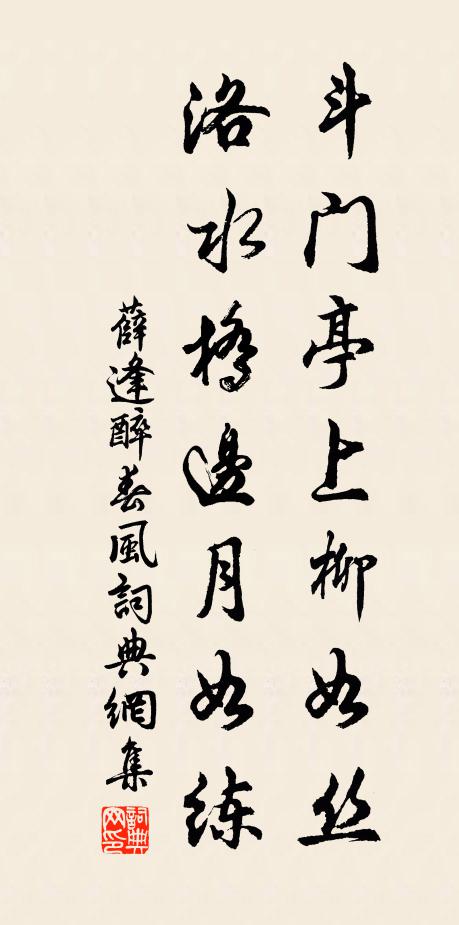 斗门亭上柳如丝
洛水橋邊月如练
薛逢醉春風詞典網集
詞典网印